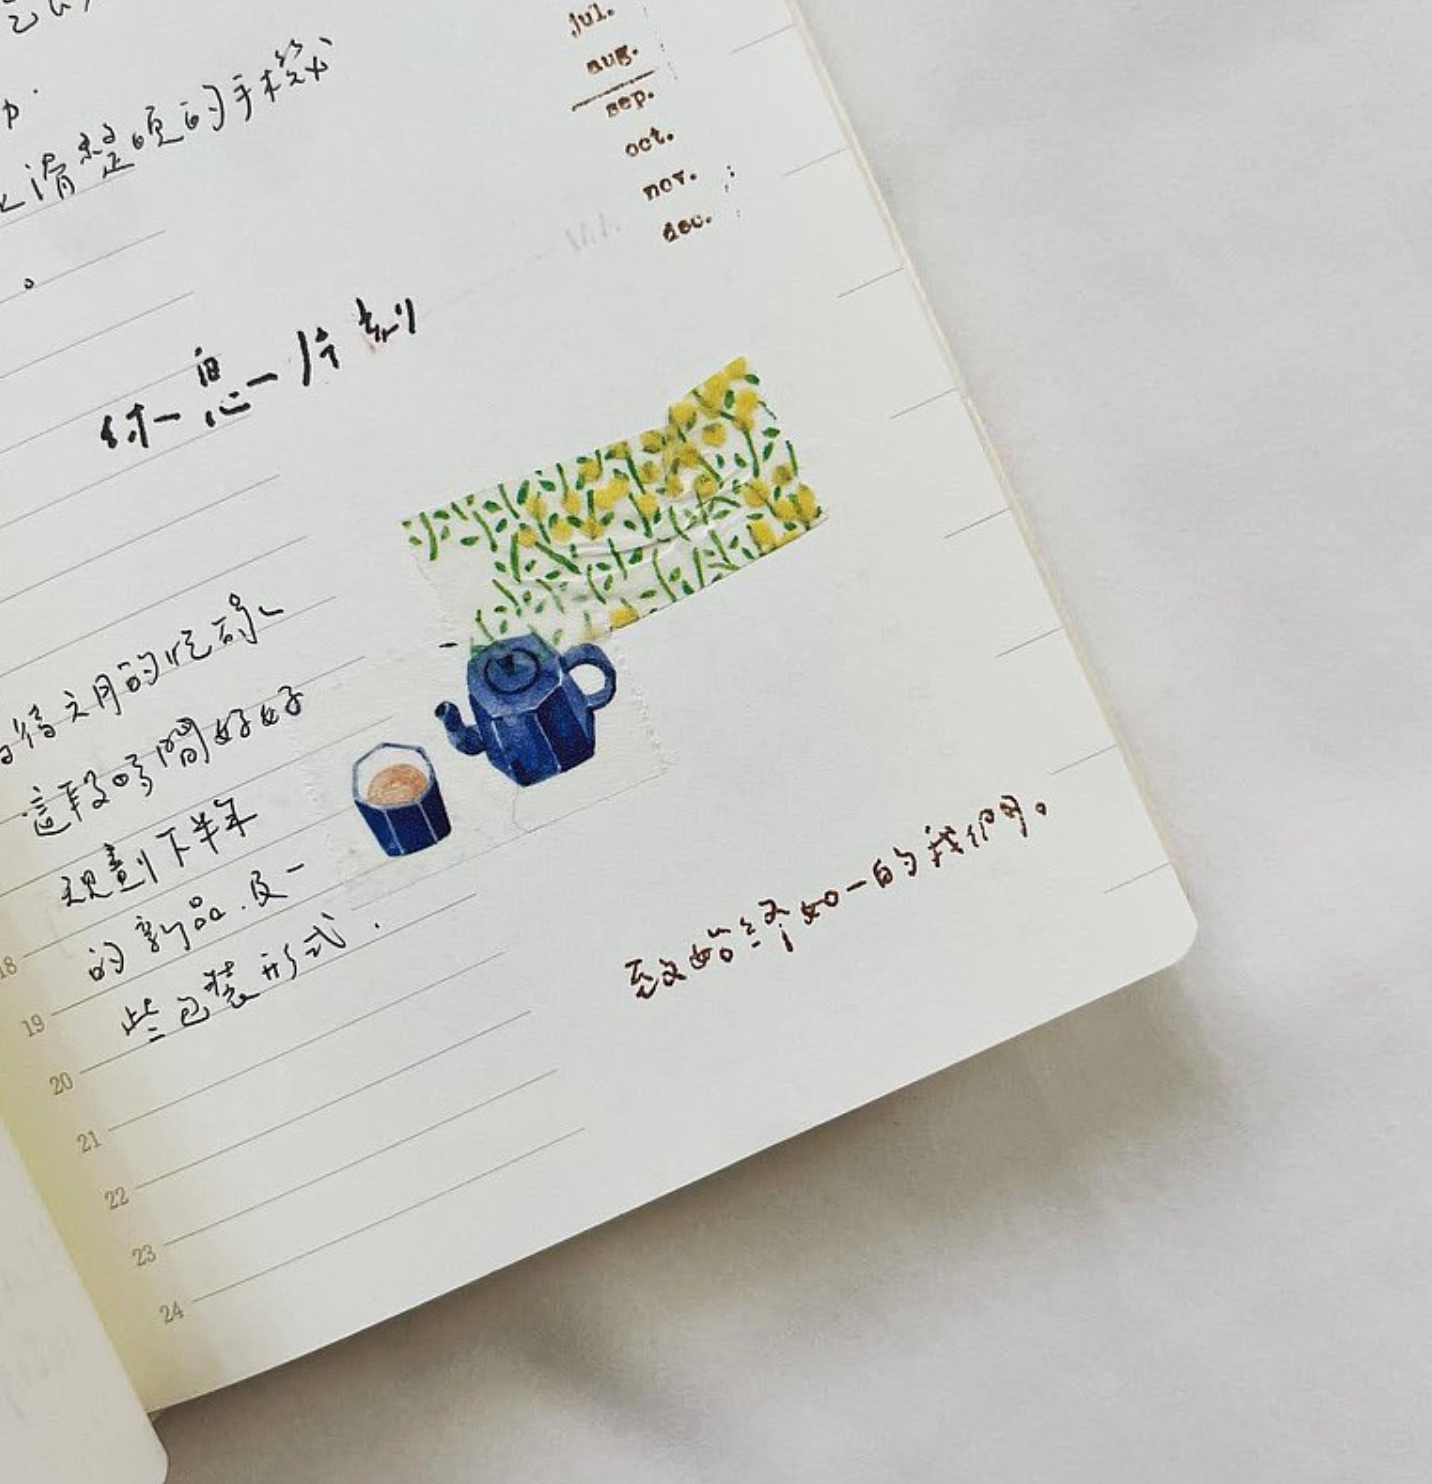 jul.
aug.
sep.
oct.
nov.
dec.
的手
休息一片刻
月的忙碌、
這段時間好好
規劃下半年
的新品.及一
些包裝形式.
致始終如一的我們。
18
19
20
21
22
23
24